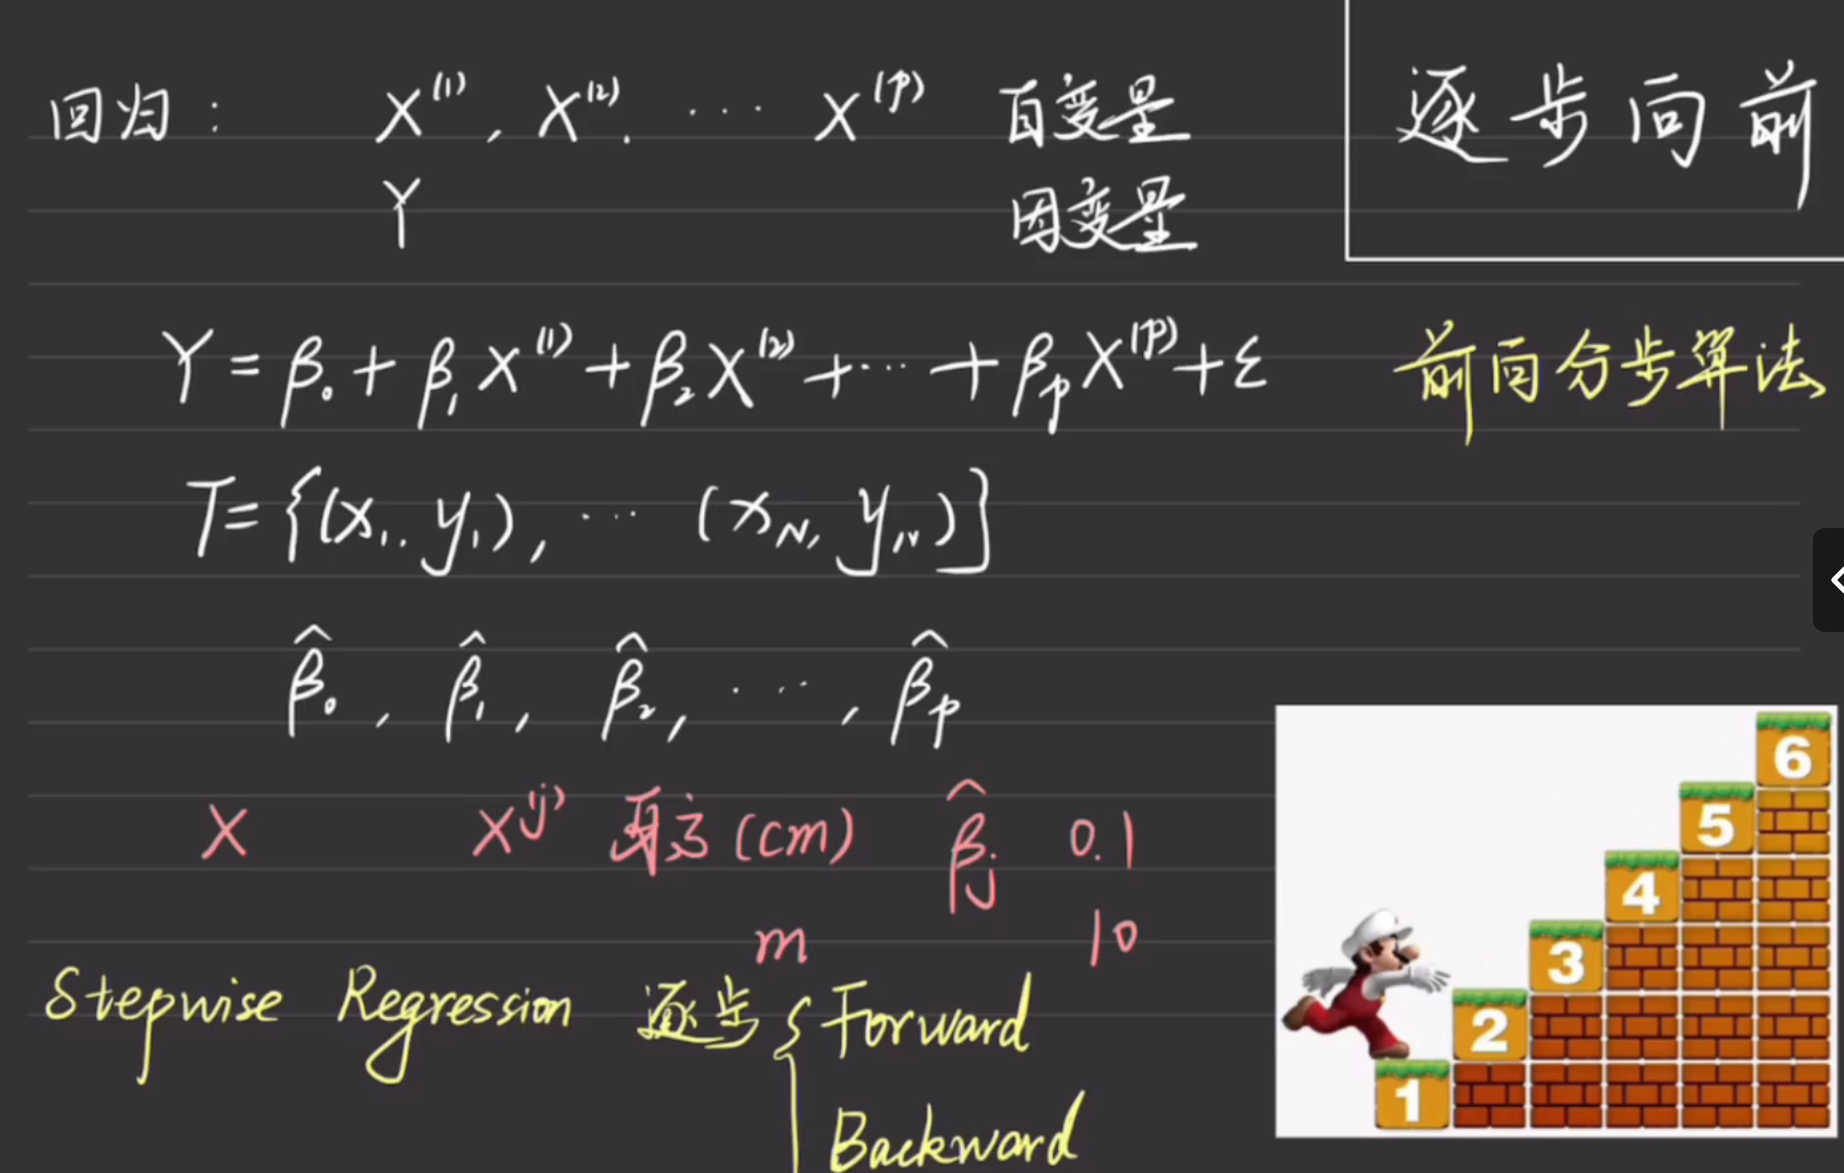 回归: X^(1), X^(2), ... X^(p) 自变量
Y 因变量
逐步向前
Y = β₀ + β₁X^(1) + β₂X^(2) + ... + βₚX^(p) + ε
前向分步算法
T = {(x₁, y₁), ... (x_N, y_N)}
β̂₀, β̂₁, β̂₂, ..., β̂ₚ
X X^(j) (cm) β̂ⱼ 0.1
m 10
Stepwise Regression 逐步 { Forward
Backward
6
5
4
3
2
1